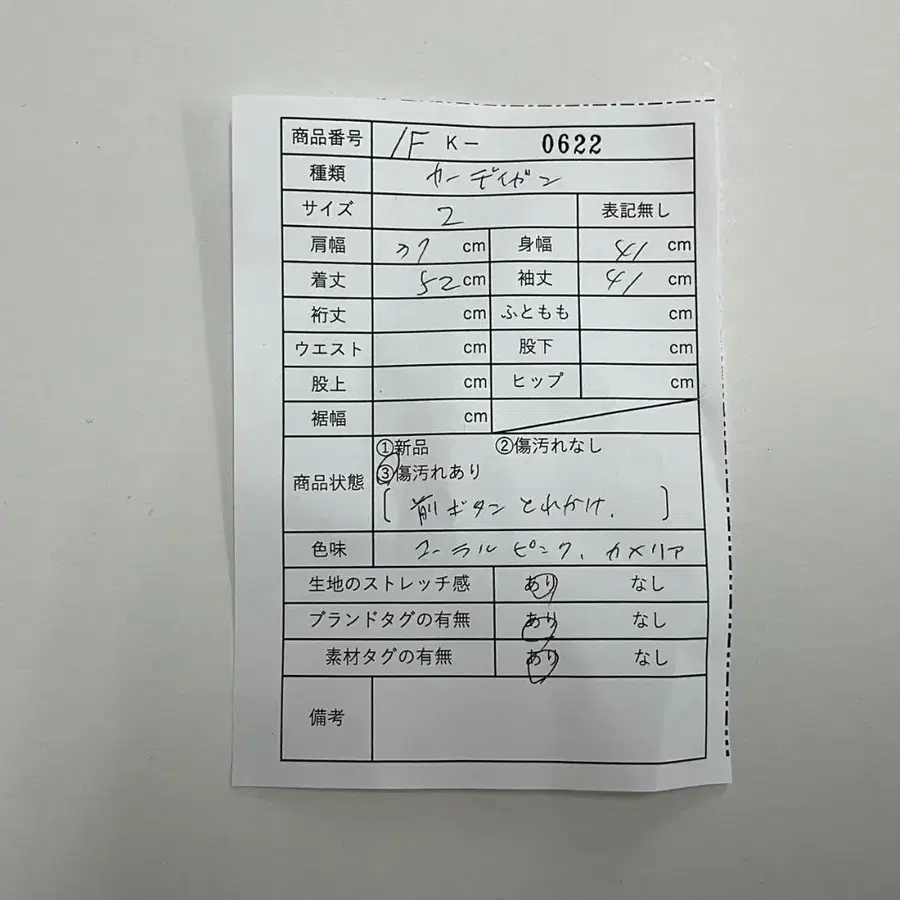 商品番号 1F K- 0622
種類 カーディガン
サイズ 2 表記無し
肩幅 37 cm 身幅 41 cm
着丈 52 cm 袖丈 41 cm
裄丈 cm ふともも cm
ウエスト cm 股下 cm
股上 cm ヒップ cm
裾幅 cm
商品状態 ①新品 ②傷汚れなし
③傷汚れあり
[ 前ボタンとれかけ. ]
色味 コーラルピンク、カメリア
生地のストレッチ感 あり なし
ブランドタグの有無 あり なし
素材タグの有無 あり なし
備考